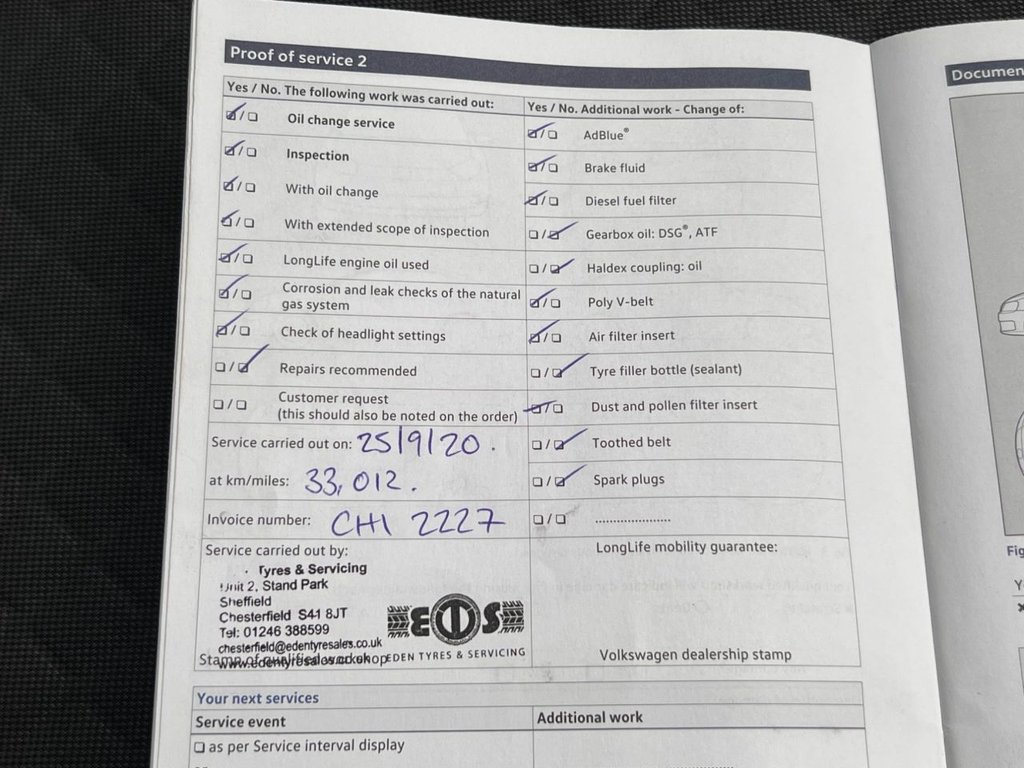 Proof of service 2
Yes / No. The following work was carried out:
☑/☐ Oil change service
☑/☐ Inspection
☑/☐ With oil change
☑/☐ With extended scope of inspection
☑/☐ LongLife engine oil used
☑/☐ Corrosion and leak checks of the natural
gas system
☑/☐ Check of headlight settings
☐/☑ Repairs recommended
☐/☐ Customer request
(this should also be noted on the order)
Service carried out on: 25/9/20.
at km/miles: 33,012.
Invoice number: CHI 2227
Service carried out by:
Tyres & Servicing
Unit 2, Stand Park
Sheffield
Chesterfield S41 8JT
Tel: 01246 388599
chesterfield@edentyresales.co.uk
www.edentyresales.co.uk
Stamp of qualified workshop
ETS
EDEN TYRES & SERVICING
Yes / No. Additional work - Change of:
☑/☐ AdBlue®
☑/☐ Brake fluid
☑/☐ Diesel fuel filter
☐/☑ Gearbox oil: DSG®, ATF
☐/☑ Haldex coupling: oil
☑/☐ Poly V-belt
☑/☐ Air filter insert
☐/☑ Tyre filler bottle (sealant)
☑/☐ Dust and pollen filter insert
☐/☑ Toothed belt
☐/☑ Spark plugs
☐/☐ .....................
LongLife mobility guarantee:
Volkswagen dealership stamp
Your next services
Service event
Additional work
☐ as per Service interval display
Documen
Fig